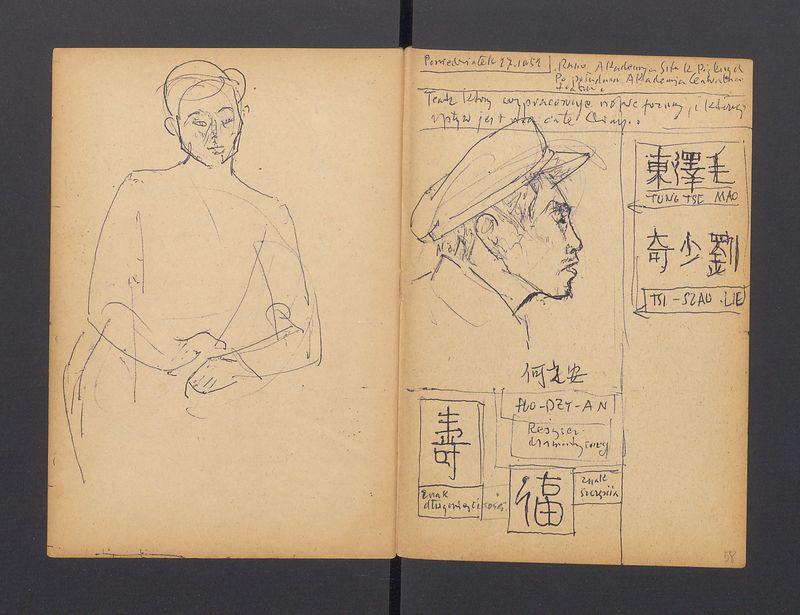 Poniedziałek 17.10 51
Rano Akademya Sztuk Pięknych
Po południu Akademja Centralna
Teatru.
Teatr który wypracowuje nowe formy, i którego
wpływ jest na całe Chiny..
東澤毛
TUNG TSE MAO
奇少劉
TSI - SZAO - LIE
何之安
HO-DZY-AN
Reżyser
壽
Znak
długowieczności
福
znak
szczęścia
58